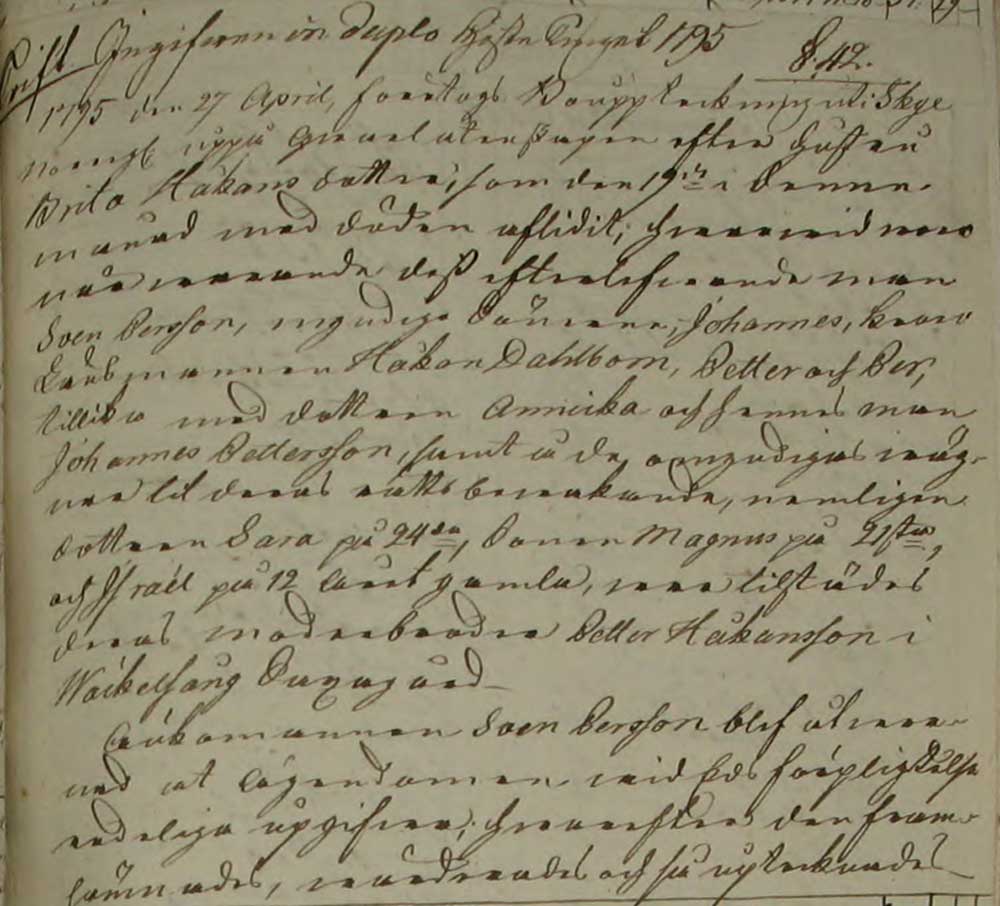 Skrift Ingifwen in duplo Höste Tinget 1795
§. 42.
1795 den 27 April, företogs Bouppteckning uti Skye
uppå qwarlåtenskapen efter hustru
Brita Håkans dotter, som den 19de i denne
månad med döden aflidit; hwarwid woro
närwarande dess efterlefwande man
Sven Persson, myndige Sönerne, Johannes, Krono
Länsmannen Håkan Dahlbom, Petter och Per,
tillika med dottren Annicka och hennes man
Johannes Pettersson, samt å de omyndigas wäg-
nar til deras rätts bewakande, nemligen
dottren Sara på 24de, Sonen Magnus på 21sta,
och Israël på 12 året gamla, war tilstädes
deras moderbroder Petter Håkansson i
Wäckelsång
Änkomannen Sven Persson blef åtwar-
nad at Ägendomen wid Eds förpligtelse
redeliga upgifwa; hwarefter den fram-
kommades, wärderades och så uptecknades